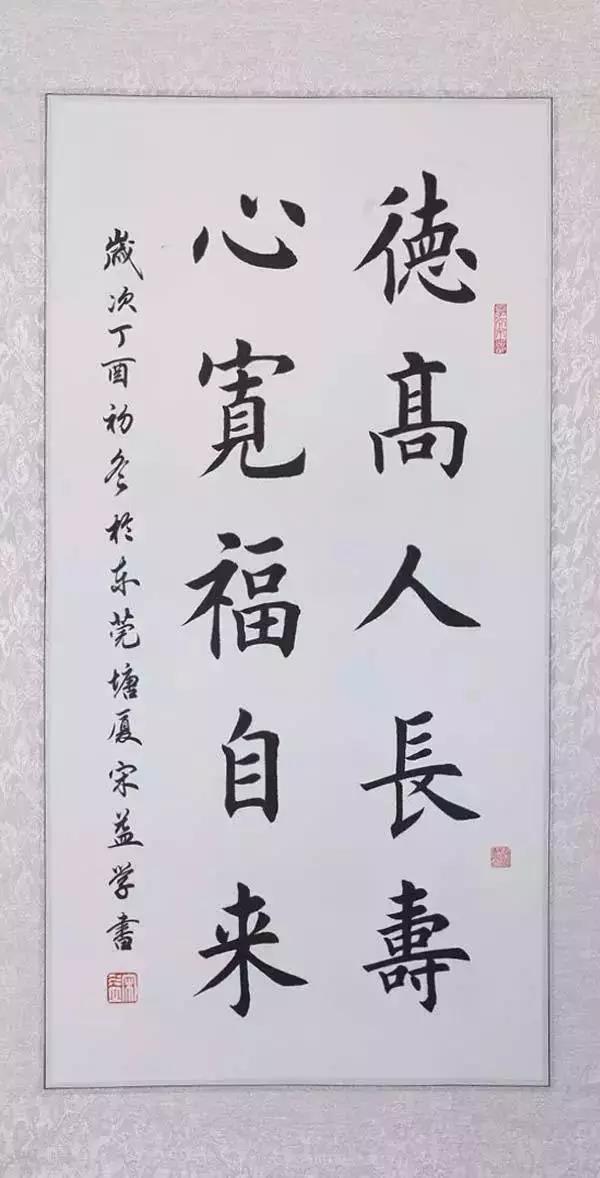 德高人長壽
心寬福自来
歲次丁酉初冬於东莞塘厦宋益学書